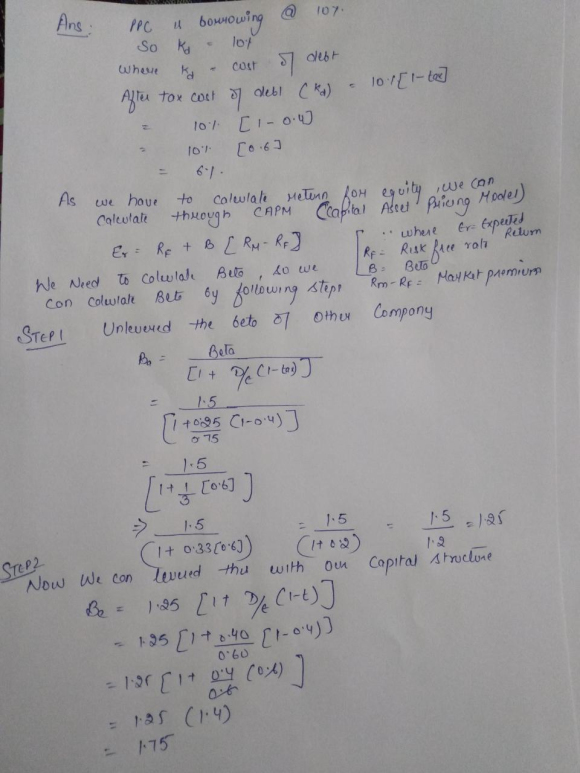 Ans: PPC is borrowing @ 10%
So Kd = 10%
where Kd = cost of debt
After tax cost of debt (Kd) = 10% [1-tax]
= 10% [1-0.4]
= 10% [0.6]
= 6%.
As we have to calculate return for equity, we can
calculate through CAPM (Capital Asset Pricing Model)
Er = RF + B [RM - RF]
[∵ where Er = Expected Return
RF = Risk free rate
B = Beta
Rm - RF = Market premium
We Need to calculate Beta, so we
can calculate Beta by following steps
STEP 1 Unlevered the beta of Other Company
B0 = Beta / [1 + D/E (1-tax)]
= 1.5 / [1 + 0.25/0.75 (1-0.4)]
= 1.5 / [1 + 1/3 [0.6]]
⇒ 1.5 / (1 + 0.33[0.6]) = 1.5 / (1+0.2) = 1.5 / 1.2 = 1.25
STEP 2
Now We can levered this with our Capital structure
Be = 1.25 [1 + D/E (1-t)]
= 1.25 [1 + 0.40/0.60 [1-0.4)]
= 1.25 [1 + 0.4/0.6 (0.6)]
= 1.25 (1.4)
= 1.75